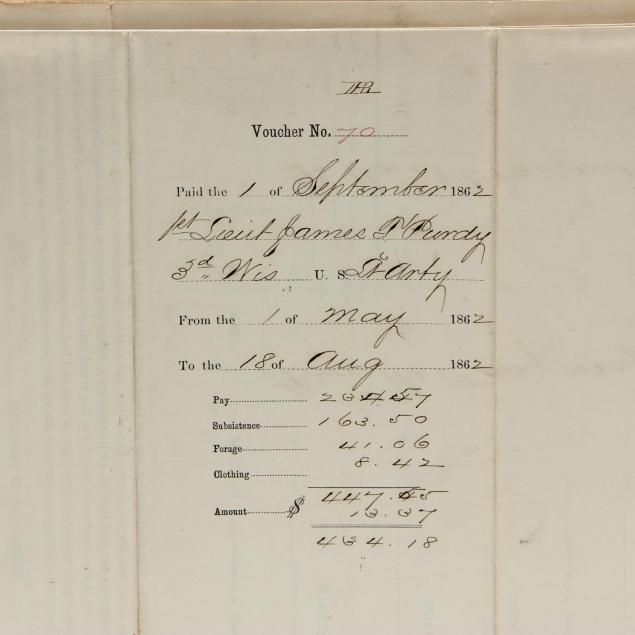 Voucher No. 70
Paid the 1 of September 1862
1st Lieut James T Purdy
3d Wis U. S. Arty
From the 1 of May 1862
To the 18 of Aug 1862
Pay 234.57
Subsistence 163.50
Forage 41.06
Clothing 8.42
447.55
Amount $ 13.37
434.18